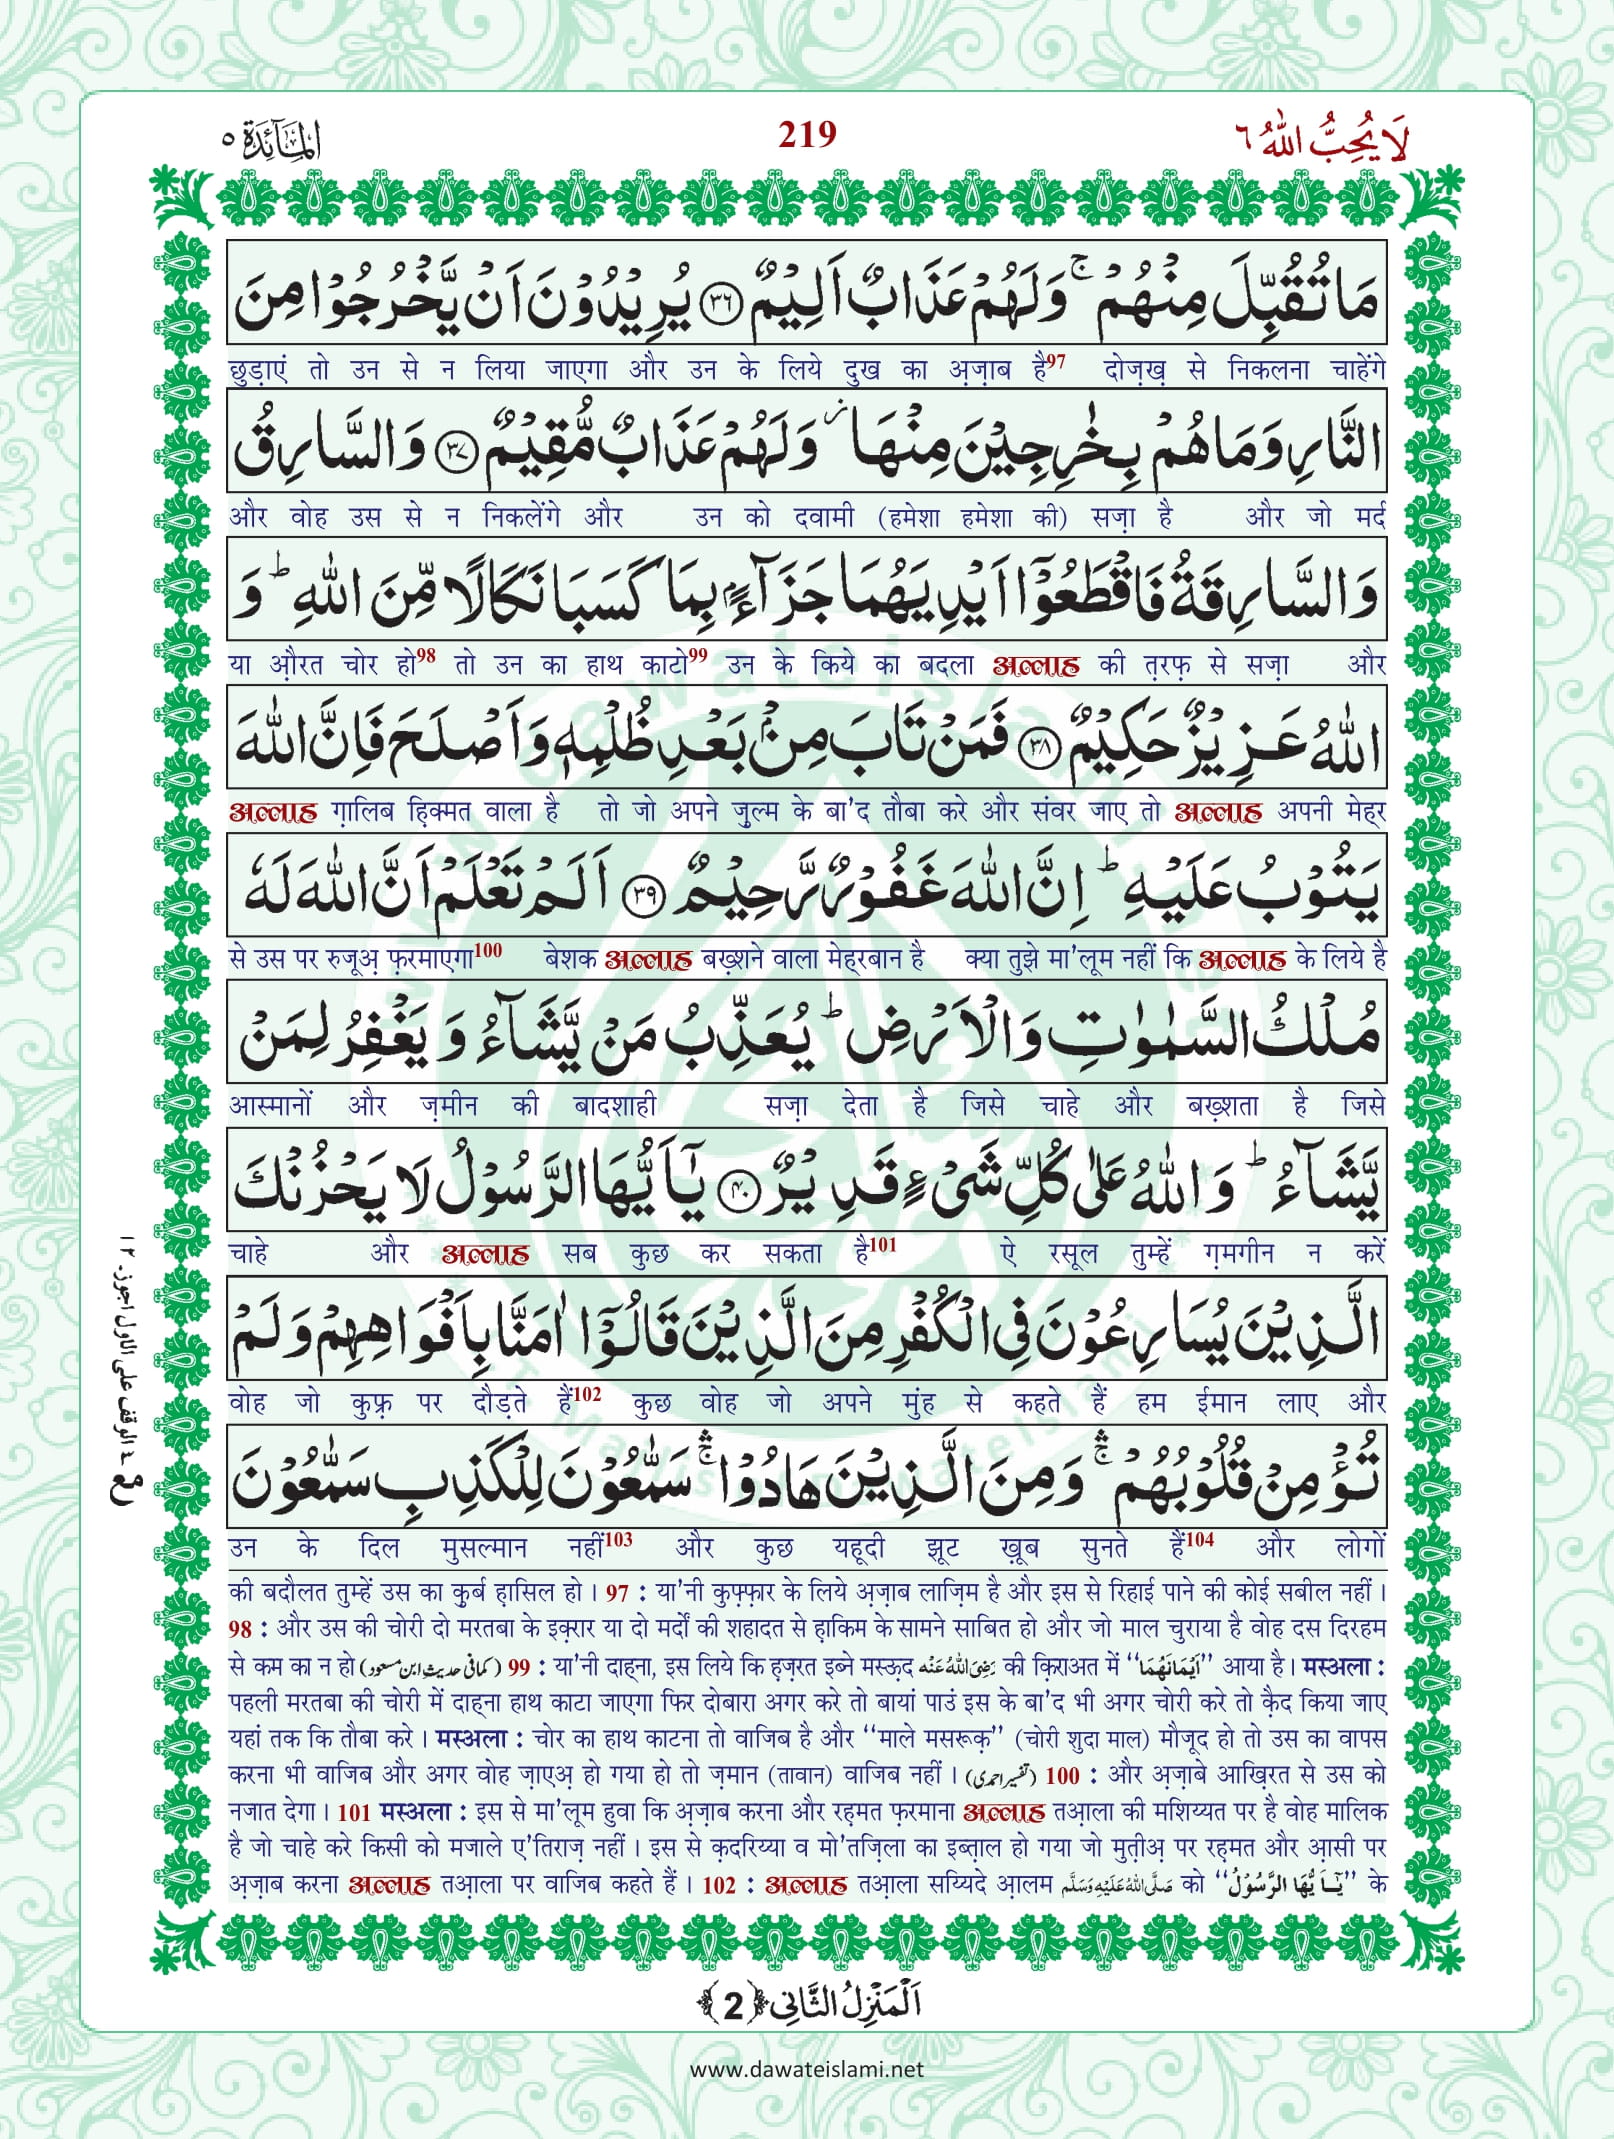 لَا یُحِبُّ اللّٰهُ ٦ 219 اَلْمَآئِدَة ٥
مَا تُقُبِّلَ مِنْهُمْ ۚ وَلَهُمْ عَذَابٌ اَلِیْمٌ ﴿۳۶﴾ یُرِیْدُوْنَ اَنْ یَّخْرُجُوْا مِنَ
छुड़ाएं तो उन से न लिया जाएगा और उन के लिये दुख का अ़ज़ाब है97 दोज़ख़ से निकलना चाहेंगे
النَّارِ وَمَا هُمْ بِخٰرِجِیْنَ مِنْهَا ؗ وَلَهُمْ عَذَابٌ مُّقِیْمٌ ﴿۳۷﴾ وَالسَّارِقُ
और वोह उस से न निकलेंगे और उन को दवामी (हमेशा हमेशा की) सज़ा है और जो मर्द
وَالسَّارِقَةُ فَاقْطَعُوْۤا اَیْدِیَهُمَا جَزَآءًۢ بِمَا كَسَبَا نَكَالًا مِّنَ اللّٰهِ ؕ وَ
या औ़रत चोर हो98 तो उन का हाथ काटो99 उन के किये का बदला अल्लाह की त़रफ़ से सज़ा और
اللّٰهُ عَزِیْزٌ حَكِیْمٌ ﴿۳۸﴾ فَمَنْ تَابَ مِنْۢ بَعْدِ ظُلْمِهٖ وَاَصْلَحَ فَاِنَّ اللّٰهَ
अल्लाह ग़ालिब हि़क्मत वाला है तो जो अपने ज़ुल्म के बा'द तौबा करे और संवर जाए तो अल्लाह अपनी मेह्र
یَتُوْبُ عَلَیْهِ ؕ اِنَّ اللّٰهَ غَفُوْرٌ رَّحِیْمٌ ﴿۳۹﴾ اَلَمْ تَعْلَمْ اَنَّ اللّٰهَ لَهٗ
से उस पर रुजूअ़ फ़रमाएगा100 बेशक अल्लाह बख़्शने वाला मेह्रबान है क्या तुझे मा'लूम नहीं कि अल्लाह के लिये है
مُلْكُ السَّمٰوٰتِ وَالْاَرْضِ ؕ یُعَذِّبُ مَنْ یَّشَآءُ وَ یَغْفِرُ لِمَنْ
आस्मानों और ज़मीन की बादशाही सज़ा देता है जिसे चाहे और बख़्शता है जिसे
یَّشَآءُ ؕ وَ اللّٰهُ عَلٰى كُلِّ شَیْءٍ قَدِیْرٌ ﴿۴۰﴾ یٰۤاَیُّهَا الرَّسُوْلُ لَا یَحْزُنْكَ
चाहे और अल्लाह सब कुछ कर सकता है101 ऐ रसूल तुम्हें ग़मगीन न करें
الَّذِیْنَ یُسَارِعُوْنَ فِی الْكُفْرِ مِنَ الَّذِیْنَ قَالُوْۤا اٰمَنَّا بِاَفْوَاهِهِمْ وَلَمْ
वोह जो कुफ़्र पर दौड़ते हैं102 कुछ वोह जो अपने मुंह से कहते हैं हम ईमान लाए और
تُؤْمِنْ قُلُوْبُهُمْ ۛۚ وَمِنَ الَّذِیْنَ هَادُوْا ۛۚ سَمّٰعُوْنَ لِلْكَذِبِ سَمّٰعُوْنَ
उन के दिल मुसल्मान नहीं103 और कुछ यहूदी झूट ख़ूब सुनते हैं104 और लोगों
की बदौलत तुम्हें उस का क़ुर्ब ह़ासिल हो । 97 : या'नी कुफ़्फ़ार के लिये अ़ज़ाब लाज़िम है और इस से रिहाई पाने की कोई सबील नहीं ।
98 : और उस की चोरी दो मरतबा के इक़्रार या दो मर्दों की शहादत से ह़ाकिम के सामने साबित हो और जो माल चुराया है वोह दस दिरहम
से कम का न हो (كمافى حديث ابن مسعود) 99 : या'नी दाह्ना, इस लिये कि ह़ज़रत इब्ने मस्ऊ़द رَضِیَ اللّٰهُ عَنْهُ की क़िराअत में ‘‘اَیْمَانَهُمَا’’ आया है । मस्अला :
पहली मरतबा की चोरी में दाह्ना हाथ काटा जाएगा फिर दोबारा अगर करे तो बायां पाउं इस के बा'द भी अगर चोरी करे तो क़ैद किया जाए
यहां तक कि तौबा करे । मस्अला : चोर का हाथ काटना तो वाजिब है और ‘‘माले मसरूक़’’ (चोरी शुदा माल) मौजूद हो तो उस का वापस
करना भी वाजिब और अगर वोह ज़ाएअ़ हो गया हो तो ज़मान (तावान) वाजिब नहीं । (تفسیر احمدی) 100 : और अ़ज़ाबे आख़िरत से उस को
नजात देगा । 101 मस्अला : इस से मा'लूम हुवा कि अ़ज़ाब करना और रह़मत फ़रमाना अल्लाह तआ़ला की मशिय्यत पर है वोह मालिक
है जो चाहे करे किसी को मजाले ए'तिराज़ नहीं । इस से क़दरिय्या व मो'तज़िला का इब्त़ाल हो गया जो मुत़ीअ़ पर रह़मत और आ़सी पर
अ़ज़ाब करना अल्लाह तआ़ला पर वाजिब कहते हैं । 102 : अल्लाह तआ़ला सय्यिदे आ़लम صَلَّی اللّٰهُ عَلَیْهِ وَسَلَّم को ‘‘یٰۤاَیُّهَا الرَّسُوْلُ’’ के
مع ٤ الوقف علی الاول اجوز ١٢
اَلْمَنْزِلُ الثَّانِی ﴿2﴾
www.dawateislami.net